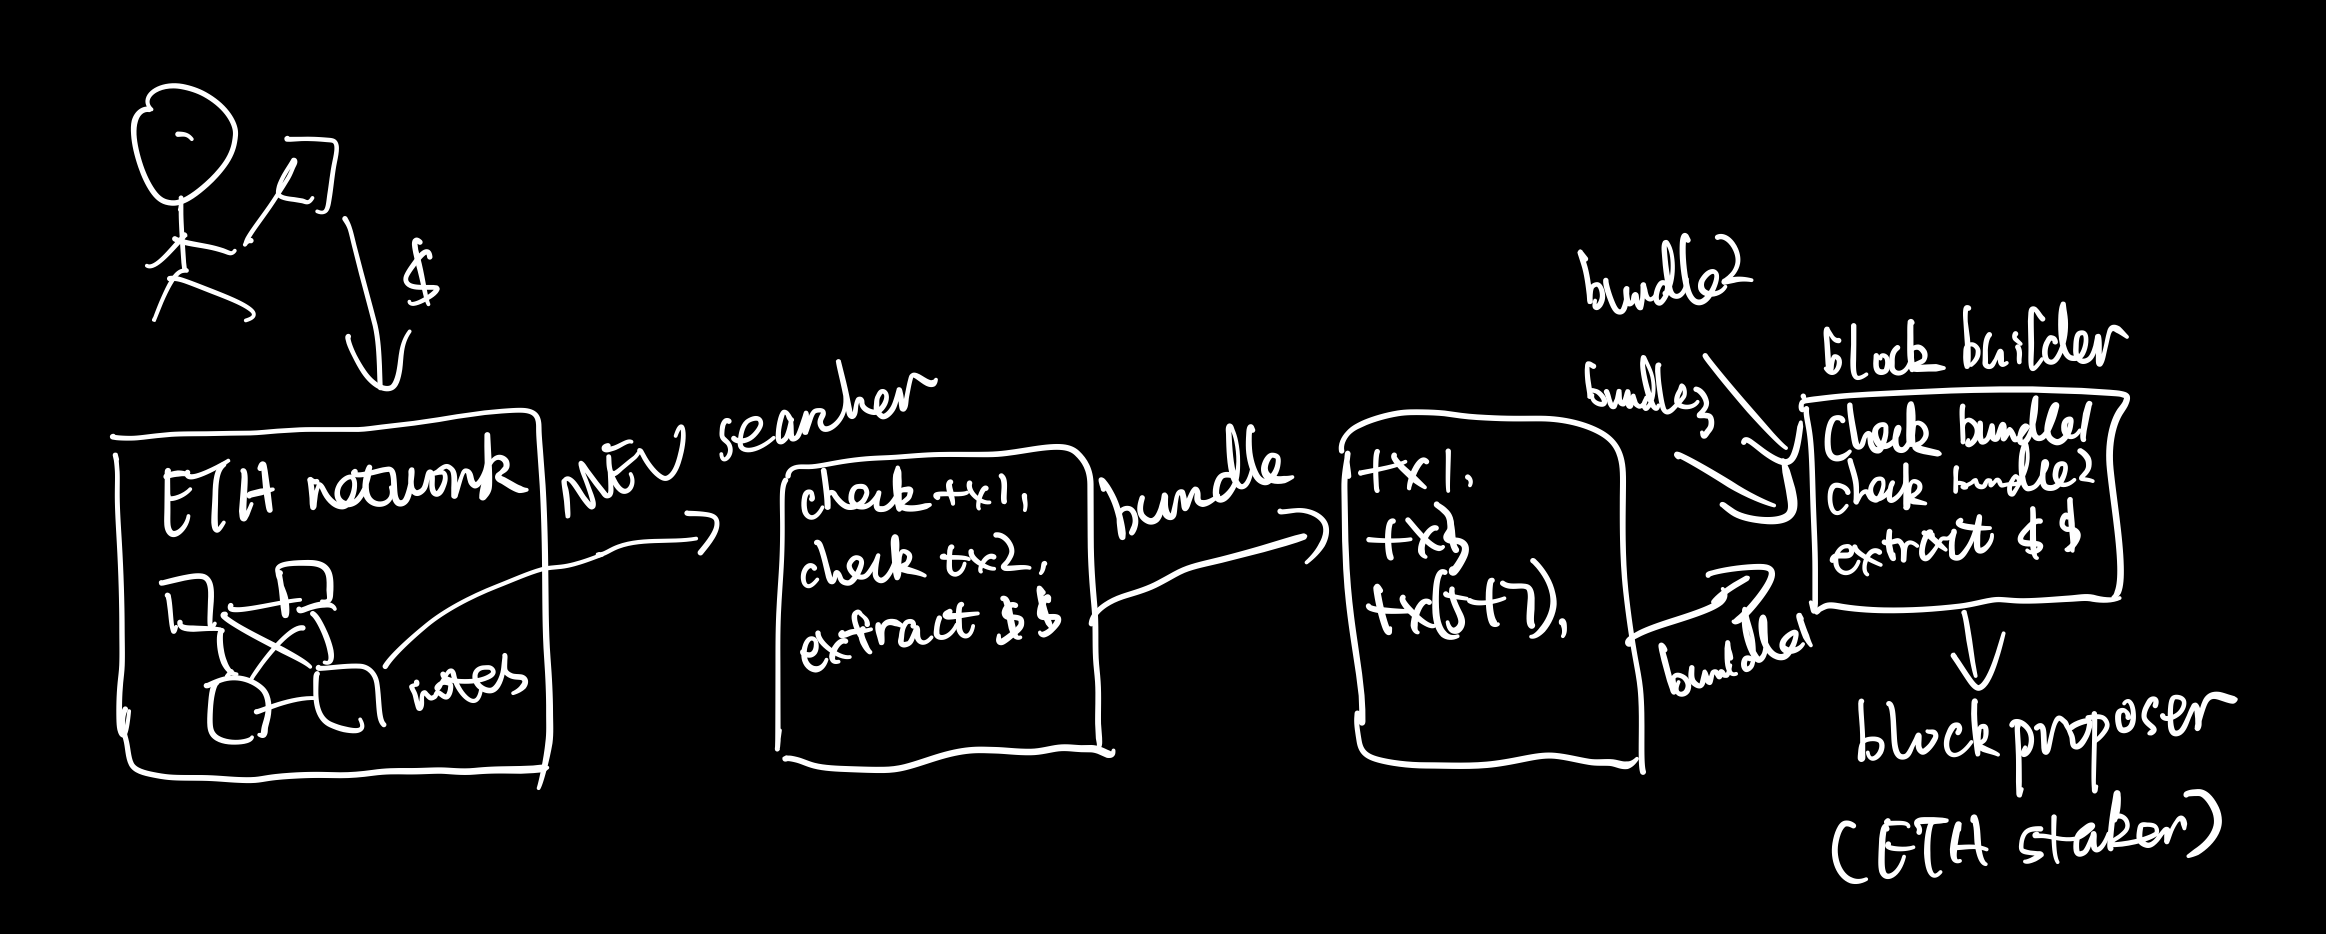 $
ETH network
notes
MEV searcher
check tx1,
check tx2,
extract $$
bundle
tx1,
tx3,
tx(5+7),
bundle2
bundle3
bundle1
block builder
check bundle1
check bundle2
extract $$
block proposer
(ETH staker)